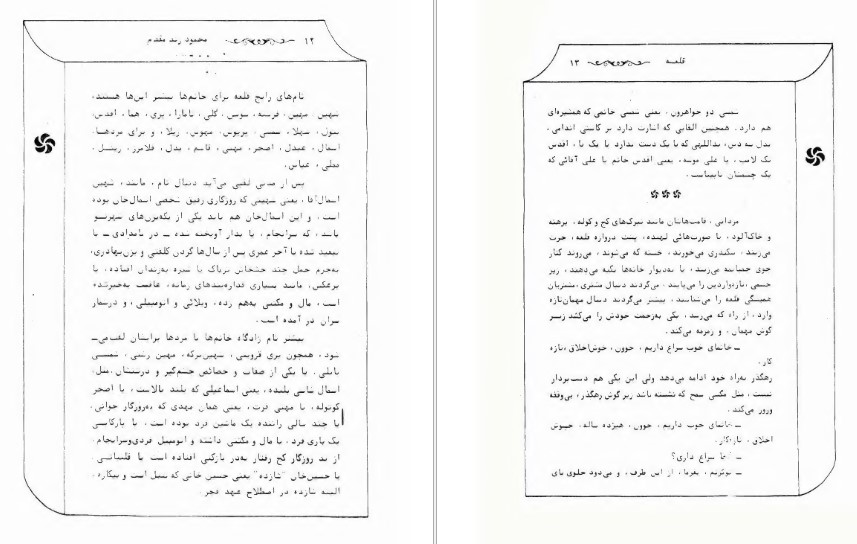 ۱۲ محمود زند مقدم
نام‌های رایج قلعه برای خانم‌ها بیشتر این‌ها هستند،
شهین، مهین، سوسن، گلی، پری، هما، اقدس،
بتول، شهلا، شمسی، پریوش، مهوش، ژیلا، و برای مردها،
اسمال، عبدل، اصغر، مهتی، قاسم، یدل، فلامرز،
عباس.
پس از مدتی لقبی می‌آید دنبال نام، مانند، شهین
اسمال‌آقا، یعنی شهینی که روزگاری رفیق شخصی اسمال‌خان بوده
است، و این اسمال‌خان هم باید یکی از بکه‌بزن‌های شهرنو
باشد، که سرانجام، یا بدار آویخته شده ــ در بامدادی ــ یا
تبعید شده یا آخر عمری پس از سال‌ها گردن کلفتی و بزن‌بهادری،
به‌جرم حمل چند تریاک یا شیره به‌زندان افتاده، یا
برعکس، مانند بسیاری قداره‌بندهای زمانه، عاقبت به‌خیر شده
است، مال و مکنتی بهم زده، ویلائی و اتومبیلی، و در شمار
سران در آمده است.
بیشتر نام زادگاه خانم‌ها یا مردها برایشان لقب می‌ــ
شود، همچون پری قزوینی، مهین رشتی، شمسی
بابلی، یا یکی از صفات و خصائص چشم‌گیر و درشتشان، مثل،
اسمال شاسی بلنده، یعنی اسماعیلی که بلند بالاست، یا اصغر
کوتوله، یا مهتی فرت، یعنی همان مهدی که به‌روزگار جوانی،
یا چند سالی راننده یک ماشین فرد بوده است، یا بارکاسی
یک باری فرد، یا مال و مکنتی داشته و اتومبیل فردی و سرانجام،
از بد روزگار کج رفتار به‌در بارکتی افتاده است یا
یا حسین‌خان "شازده" یعنی حسین خانی که تنبل است و بیکاره،
البته شازده در اصطلاح عهد قجر
قلعه ۱۳
شمسی دو خواهرون، یعنی شمسی خانمی که همشیره‌ای
هم دارد. همچنین القابی که اشارت دارد بر کاستی اندامی.
یدل یه دس، یداللهی که یا یک دست ندارد یا یک پا، اقدس
تک لامپ، یا علی یعنی اقدس خانم یا علی آقائی که
یک چشمشان نابیناست.
مردانی، قامت‌هاشان مانند تیرک‌های کج و کوله، برهنه
و خاک‌آلود، با صورت‌هائی لهیده، پشت دروازه قلعه، چرت
می‌زنند، سکندری می‌خورند، خسته که می‌شوند، می‌روند کنار
جوی چمباتمه می‌زنند، یا به‌دیوار خانه‌ها تکیه می‌دهند، زیر
چشمی، تازه‌واردین را می‌پایند. می‌گردند دنبال مشتری، مشتریان
همیشگی قلعه را می‌شناسند، بیشتر می‌گردند دنبال مهمان تازه
وارد، از راه که می‌رسد، یکی به‌زحمت خودش را می‌کشد زیر
گوش مهمان، و زمزمه می‌کند.
ــ خانمای خوب سراغ داریم، جوون، خوش‌اخلاق، تازه
کار.
رهگذر به‌راه خود ادامه می‌دهد ولی این یکی هم دست‌بردار
نیست، مثل مگسی سمج که نشسته باشد زیر گوش رهگذر، بی‌وقفه
وزوز می‌کند.
ــ خانمای خوب داریم، جوون، هیژده ساله، خیوش
اخلاق، تازه‌کار.
ــ کجا سراغ داری؟
ــ نوکرتم، بفرما، از این طرف، و می‌دود جلوی پای